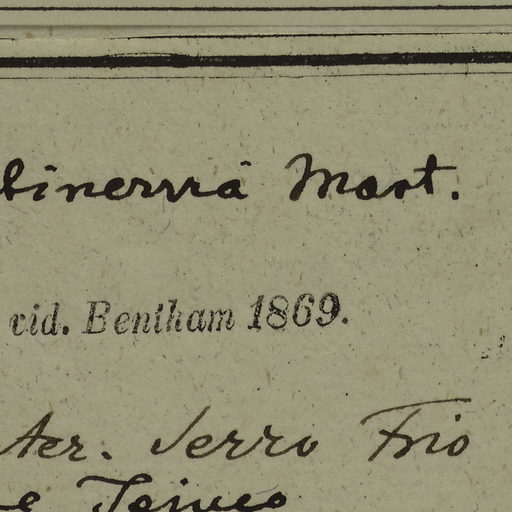 binervia Mart.
vid. Bentham 1869.
Serro Frio
Tejuco